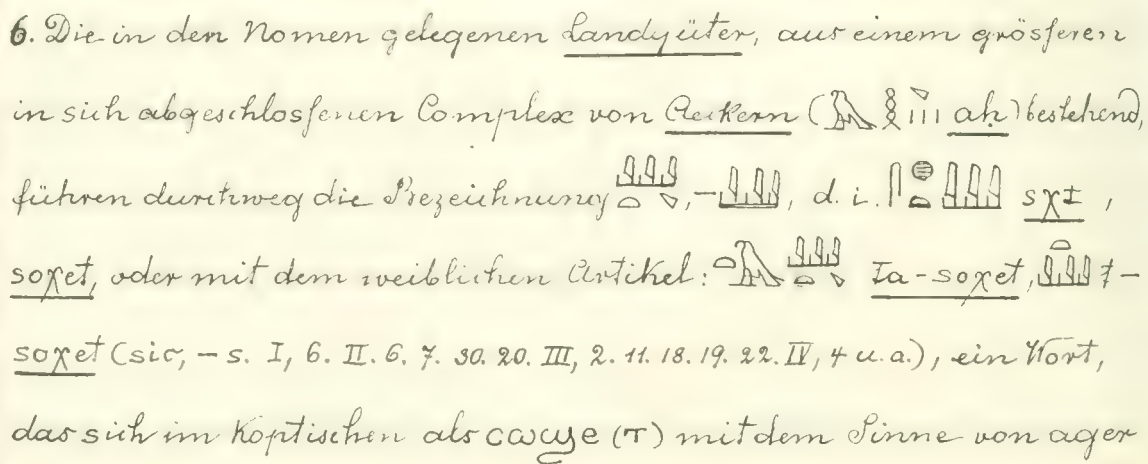 6. Die in den Nomen gelegenen Landgüter, aus einem grösseren
in sich abgeschlossenen Complex von Aeckern ( aḥ) bestehend,
führen durchweg die Bezeichnung , – , d. i. sχt ,
soχet, oder mit dem weiblichen Artikel: Ta-soχet, t-
soχet (sic, – s. I, 6. II. 6. 7. 30. 20. III, 2. 11. 18. 19. 22. IV, 4 u. a.), ein Wort,
das sich im Koptischen als ⲥⲱϣⲉ (ⲧ) mit dem Sinne von ager